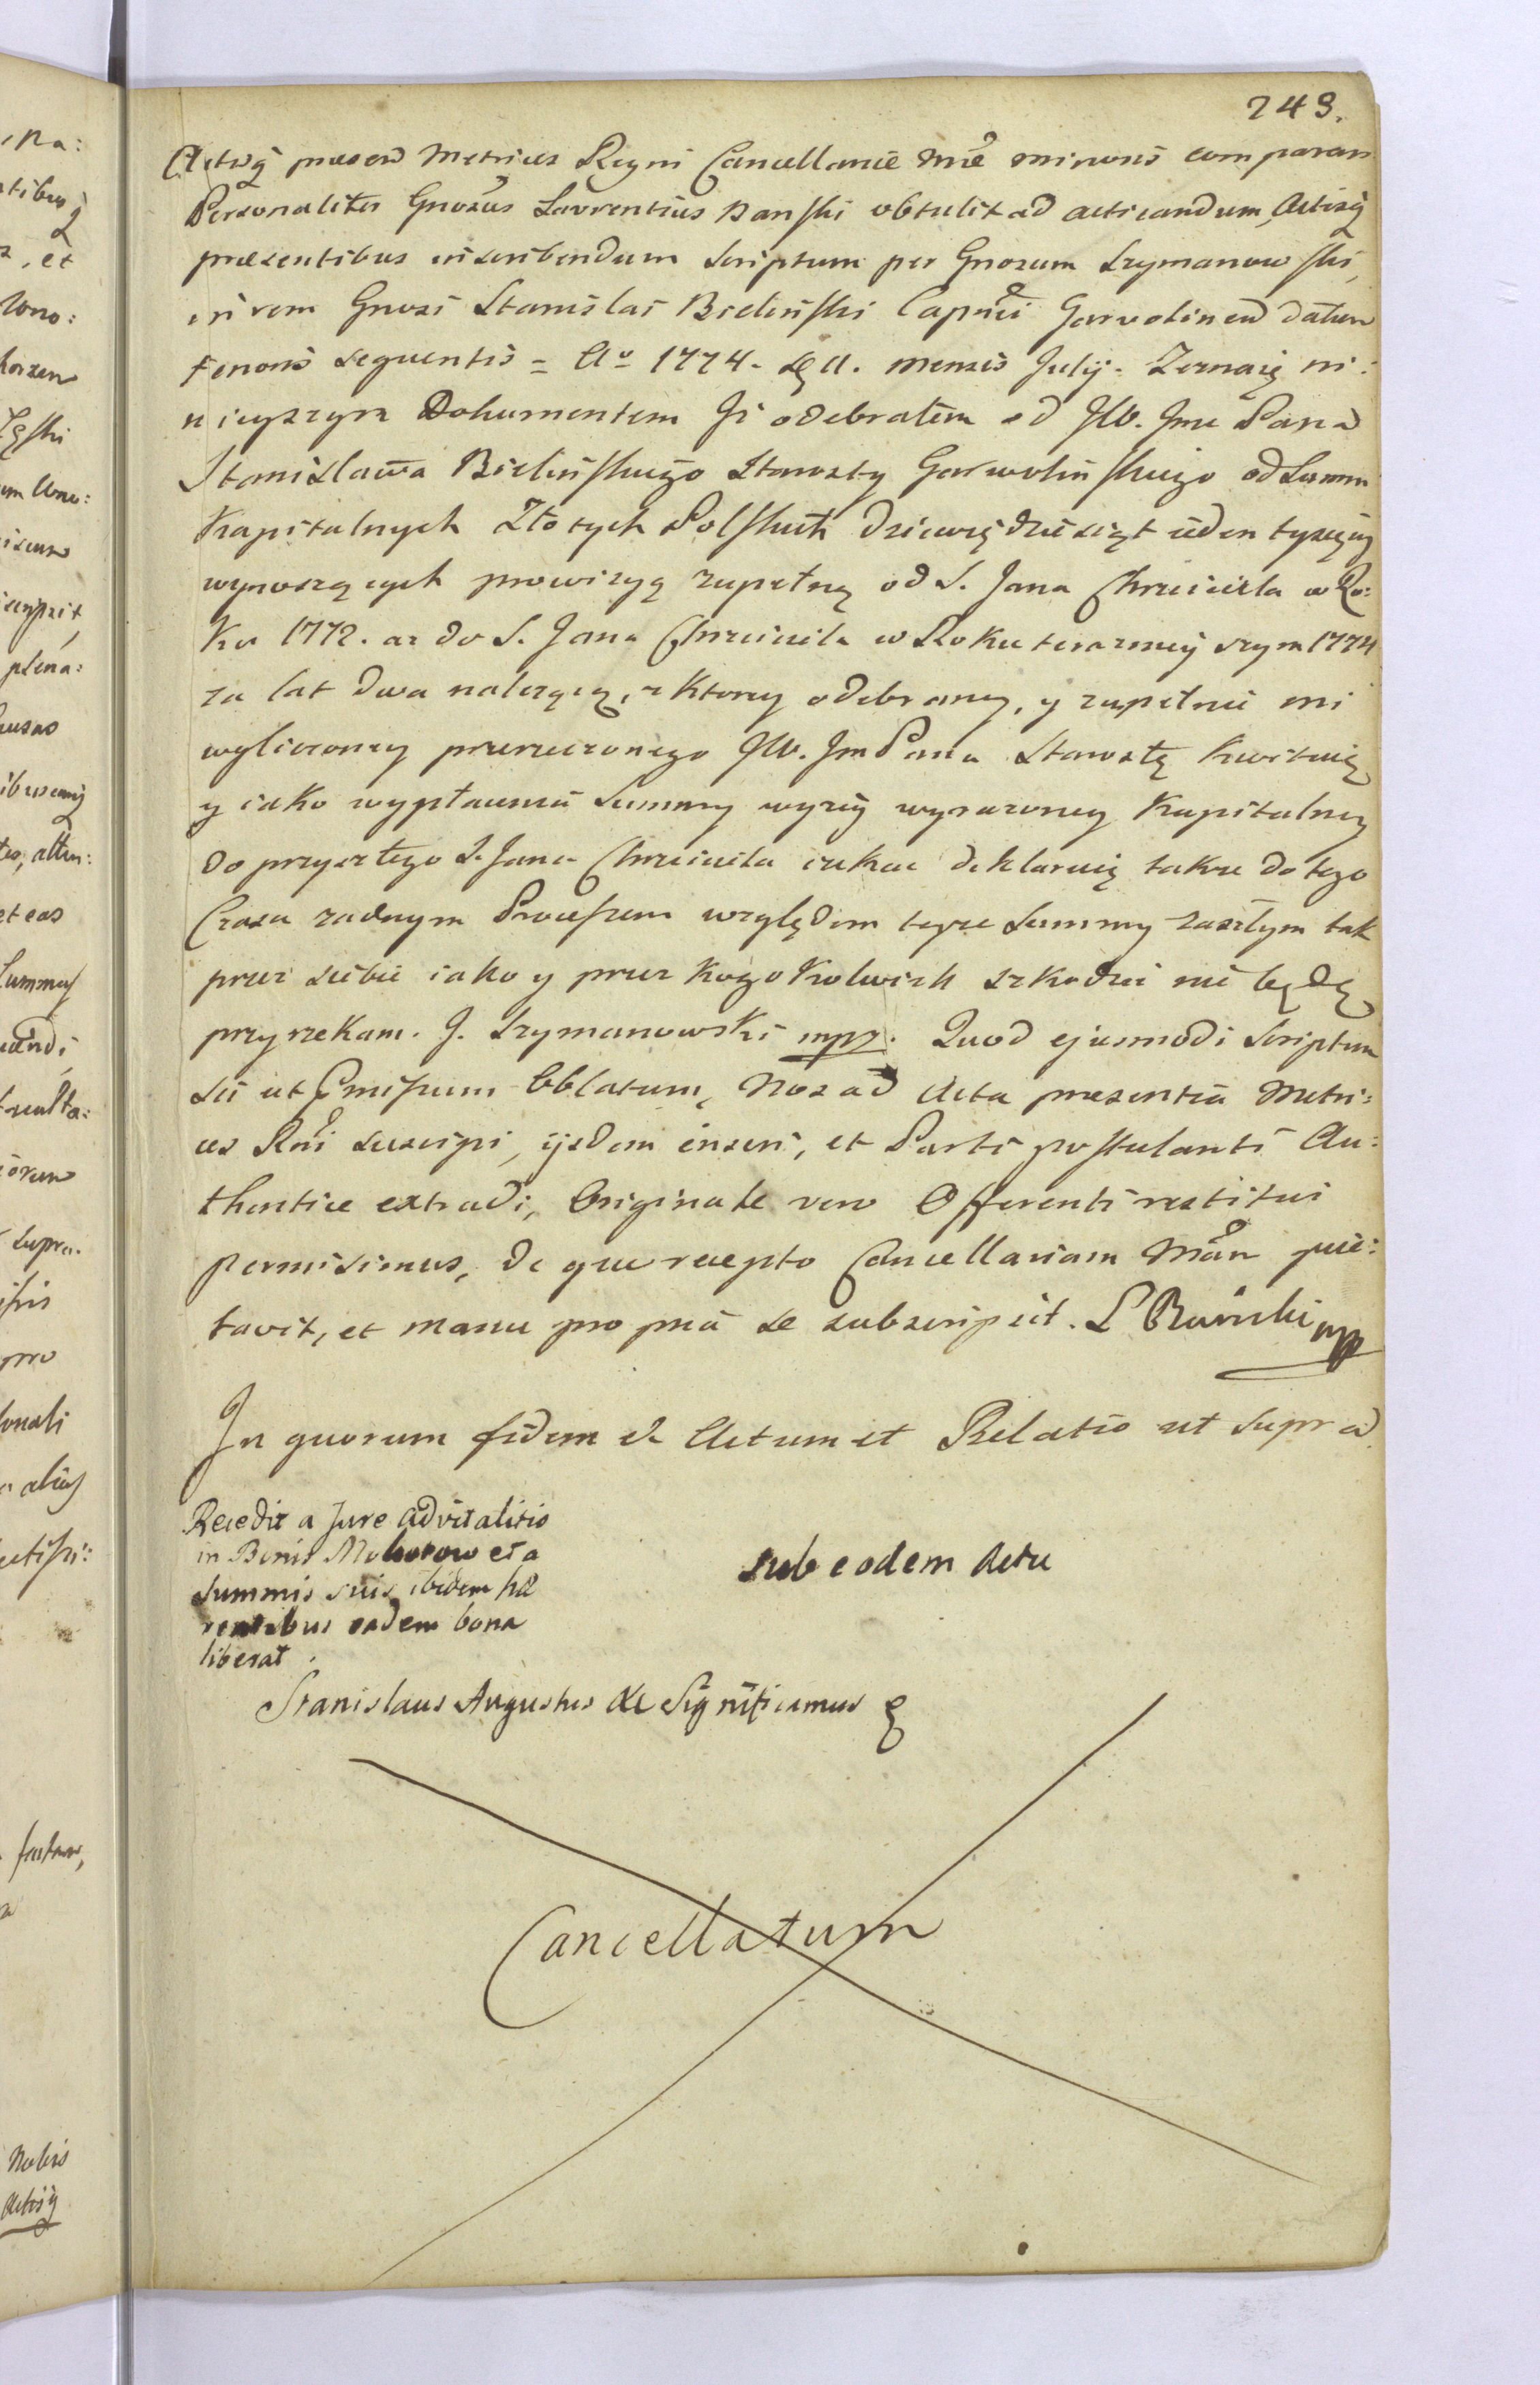 243.
Actisq̃ præsen Metrices Regni Cancellariæ Mris minoris comparen
Personaliter Gnosus Laurentius Banski obtulit ad acticandum, Actisq̃
præsentibus inscribendum Scriptum per Gnosum Szymanowski,
in rem Gnosi Stanislai Bielinski Capnei Garvolinen datum
tenoris sequentis = Ao 1774. d. 11. mensis Julij. Zeznaię ni:
nieyszym Dokumentem Iż odebrałem od JW. Jmc Pana
Stanisława Bielinskiego Starosty Garwolinskiego od Summ
Kapitalnych Złotych Polskich dziewiędziesiąt ieden tysięcy
wynoszących prowizyą zupełną od S. Jana Chrzciciela w Ro:
ku 1772. aż do S. Jana Chrzciciela w Roku teraznieyszym 1774
za lat dwa należącą, z ktorey odebraney, y zupełnie mi
wyliczoney przerzeczonego JW. Jm Pana Starostę kwituię
y iako wypłacenia Summy wyżey wyrażoney Kapitalney
do przyszłego S. Jana Chrzciciela czekać deklaruię także do tego
Czasu żadnym Processem względem teyże Summy zaszłym tak
przez siebie iako y przez kogokolwiek szkodzić nie będę
przyrzekam. J. Szymanowski mpp. Quod ejusmodi Scriptum
sic ut Præmissum Oblatum, Nos ad Acta præsentia Metri:
ces Rni suscipi, ijsdem inseri, et Parti postulanti Au:
thentice extradi, Originale vero Offerenti restitui
permisimus, de quo recepto Cancellariam Mãm quie:
tavit, et manu propria se subscripsit. L Banski mpp
In quorum fidem &c Actum et Relatio ut supra
Recedit a Jure advitalitio
in Bonis Mokorow et a
summis suis ibidem hæ
rentibus eadem bona
liberat.
sub eodem Actu
Stanislaus Augustus &c Significamus &
Cancellatum